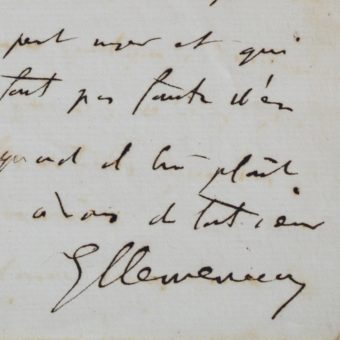 peut user et qui
pas faute d'en
quand il lui plaît
à vous de tout cœur
GClemenceau